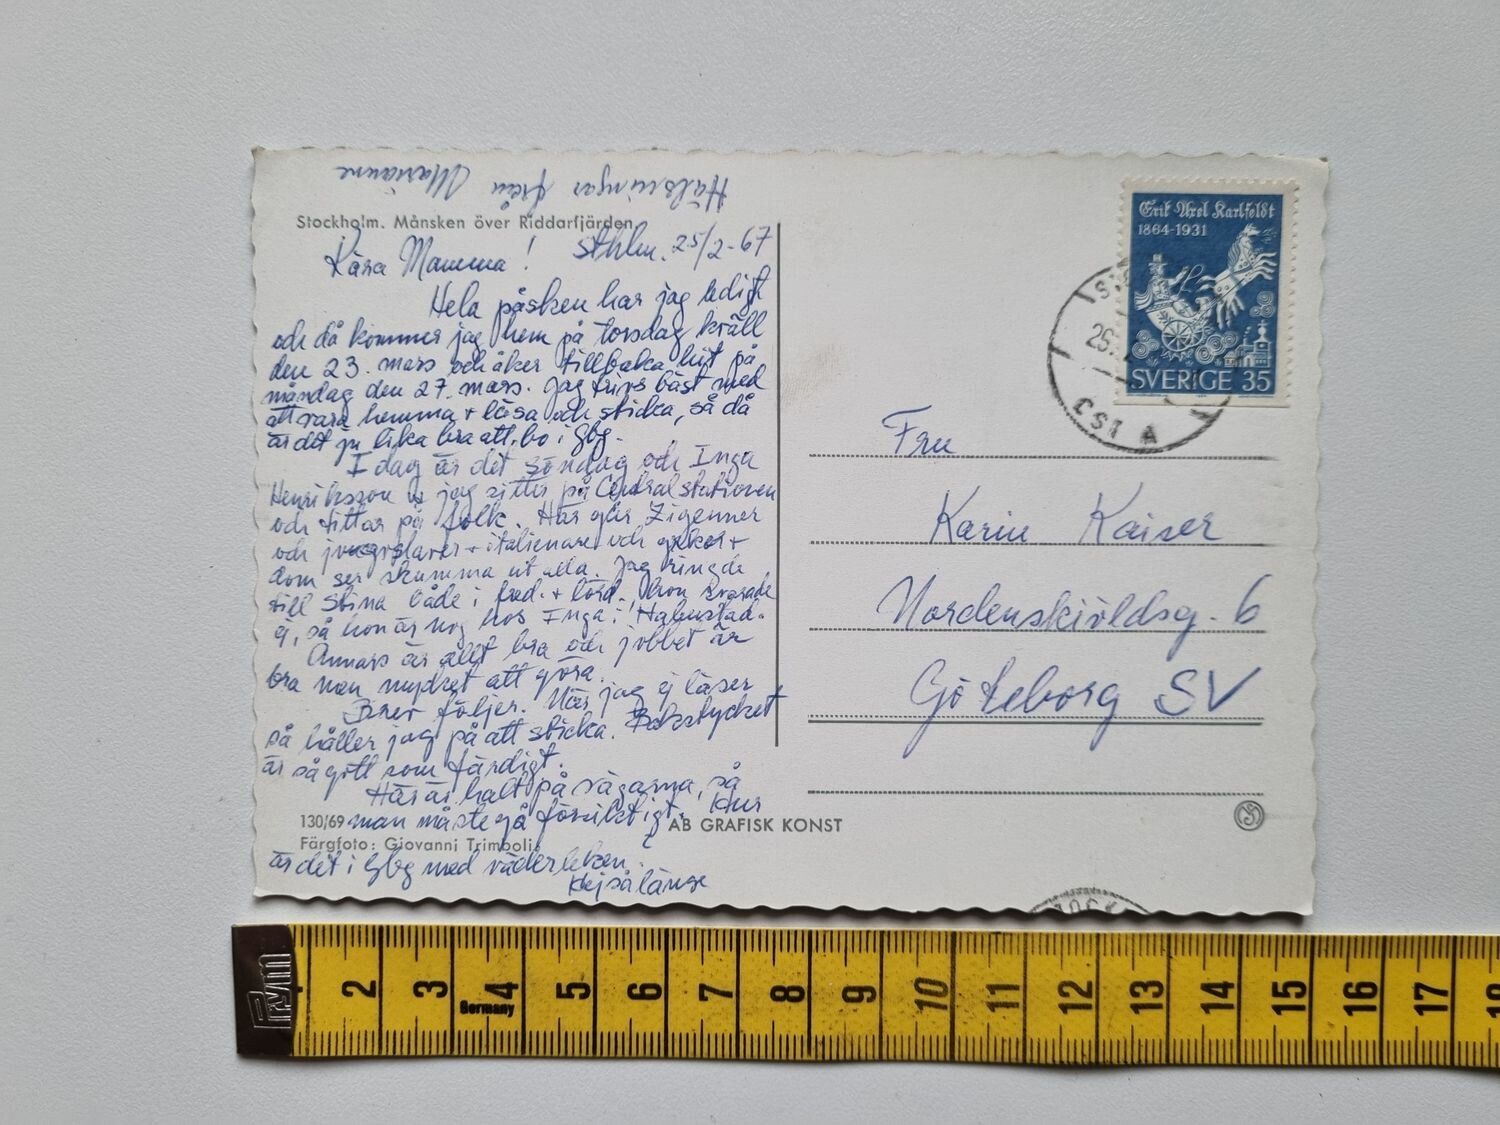 Hälsningar från Marianne
Stockholm. Månsken över Riddarfjärden
Kära Mamma! Sthlm. 25/2-67
Hela påsken har jag ledigt
och då kommer jag hem på torsdag kväll
den 23. mars och åker tillbaka hit på
måndag den 27. mars. Jag trivs bäst med
att vara hemma + läsa och sticka, så då
är det ju lika bra att bo i Gbg.
I dag är det söndag och Inga
Henriksson & jag sitter på Centralstationen
och tittar på folk. Här går Zigenner
och jugoslaver + italienare och greker +
som ser skumma ut alla. Jag ringde
till Stina både i fred. + lörd. Hon svarade
ej, så hon är nog hos Inga i Halmstad.
Annars är allt bra och jobbet är
bra men mycket att göra.
Brev följer. När jag ej läser
så håller jag på att sticka. Bakstycket
är så gott som färdigt.
Här är halt på vägarna, så
man måste gå försiktigt. Hur
är det i Gbg med väderleken.
Hej så länge
130/69
Färgfoto: Giovanni Trimbolis
AB GRAFISK KONST
Erik Axel Karlfeldt
1864-1931
SVERIGE 35
26.
CST A
Fru
Karin Kaiser
Nordenskiöldsg. 6
Göteborg SV
Prym
2 3 4 5 6 7 8 9 10 11 12 13 14 15 16 17 18
Germany